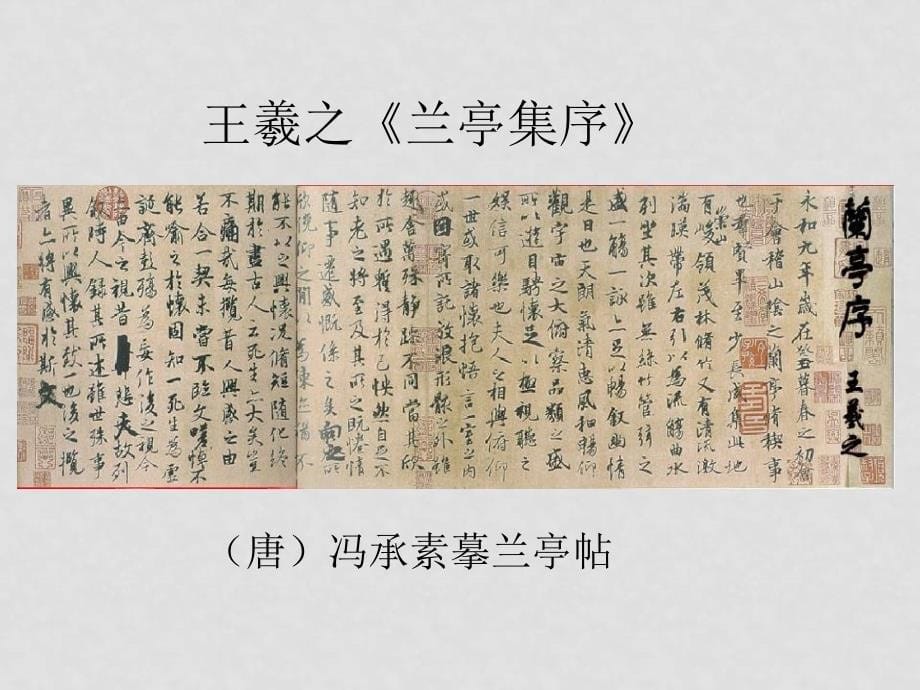 王羲之《兰亭集序》
蘭亭序 王羲之
永和九年歲在癸丑暮春之初會
于會稽山陰之蘭亭脩禊事
也群賢畢至少長咸集此地
有崇山峻領茂林脩竹又有清流激
湍暎帶左右引以為流觴曲水
列坐其次雖無絲竹管弦之
盛一觴一詠亦足以暢敘幽情
是日也天朗氣清惠風和暢仰
觀宇宙之大俯察品類之盛
所以遊目騁懷足以極視聽之
娛信可樂也夫人之相與俯仰
一世或取諸懷抱悟言一室之內
或因寄所託放浪形骸之外雖
趣舍萬殊靜躁不同當其欣
於所遇暫得於己快然自足不
知老之將至及其所之既惓情
隨事遷感慨係之矣向之所
欣俛仰之閒以為陳迹猶不
能不以之興懷況脩短隨化終
期於盡古人云死生亦大矣豈
不痛哉每攬昔人興感之由
若合一契未嘗不臨文嗟悼不
能喻之於懷固知一死生為虛
誕齊彭殤為妄作後之視今
亦由今之視昔悲夫故列
敘時人錄其所述雖世殊事
異所以興懷其致一也後之攬
者亦將有感於斯文
（唐）冯承素摹兰亭帖